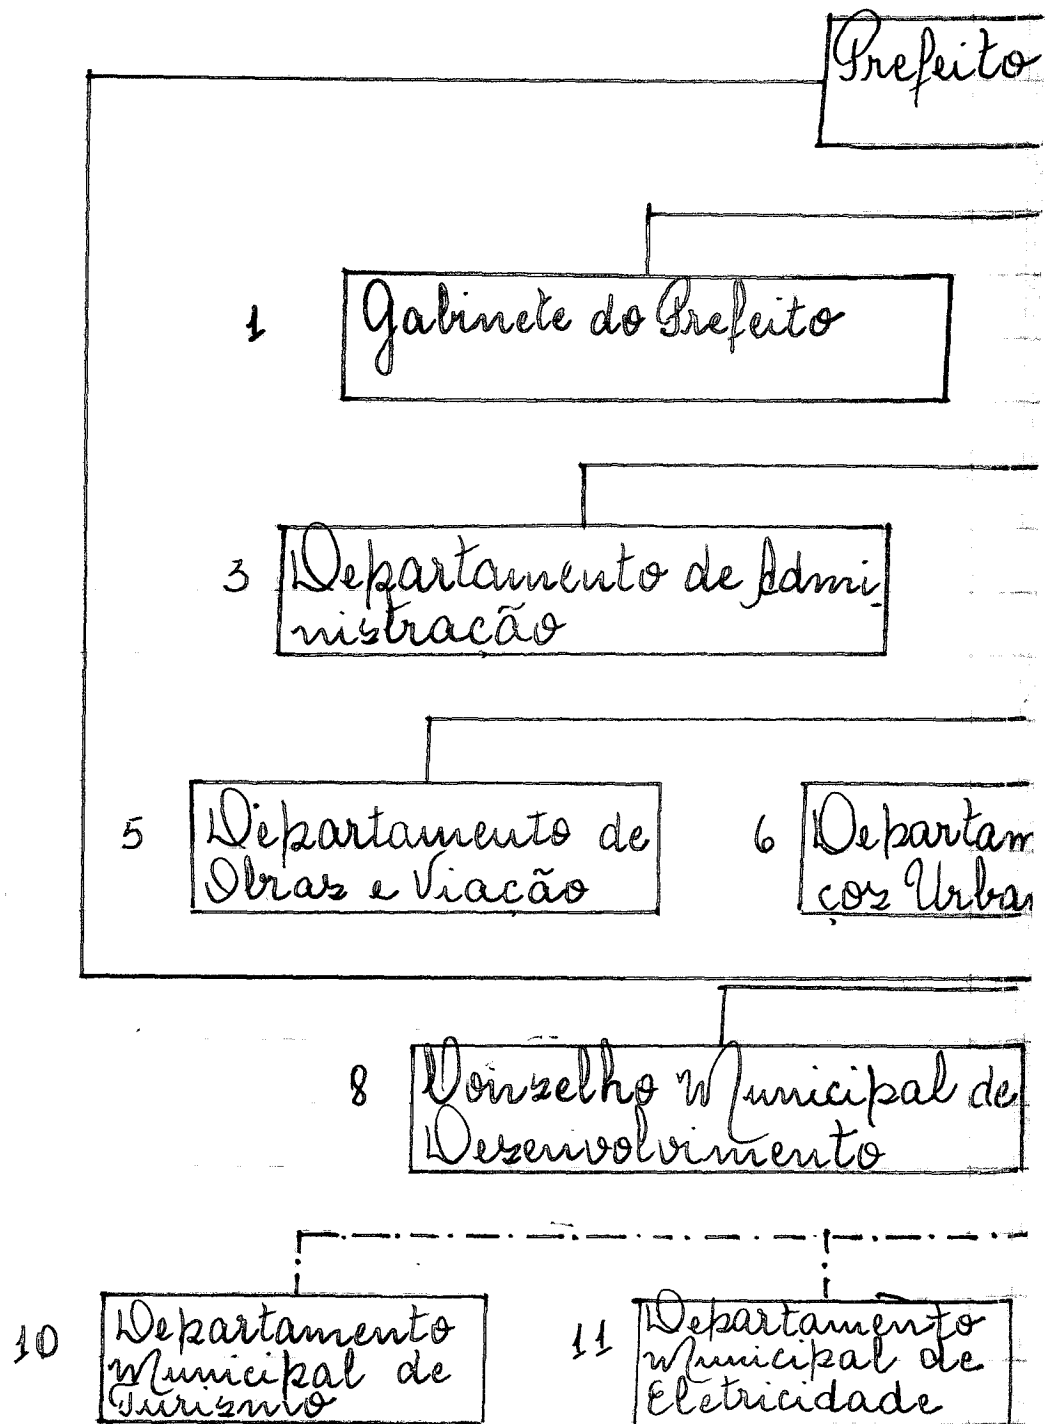 Prefeito
1 Gabinete do Prefeito
3 Departamento de Admi-
nistracão
5 Departamento de
Obras e Viacão
6 Departam
ços Urban
8 Conselho Municipal de
Desenvolvimento
10 Departamento
Municipal de
Turismo
11 Departamento
Municipal de
Eletricidade